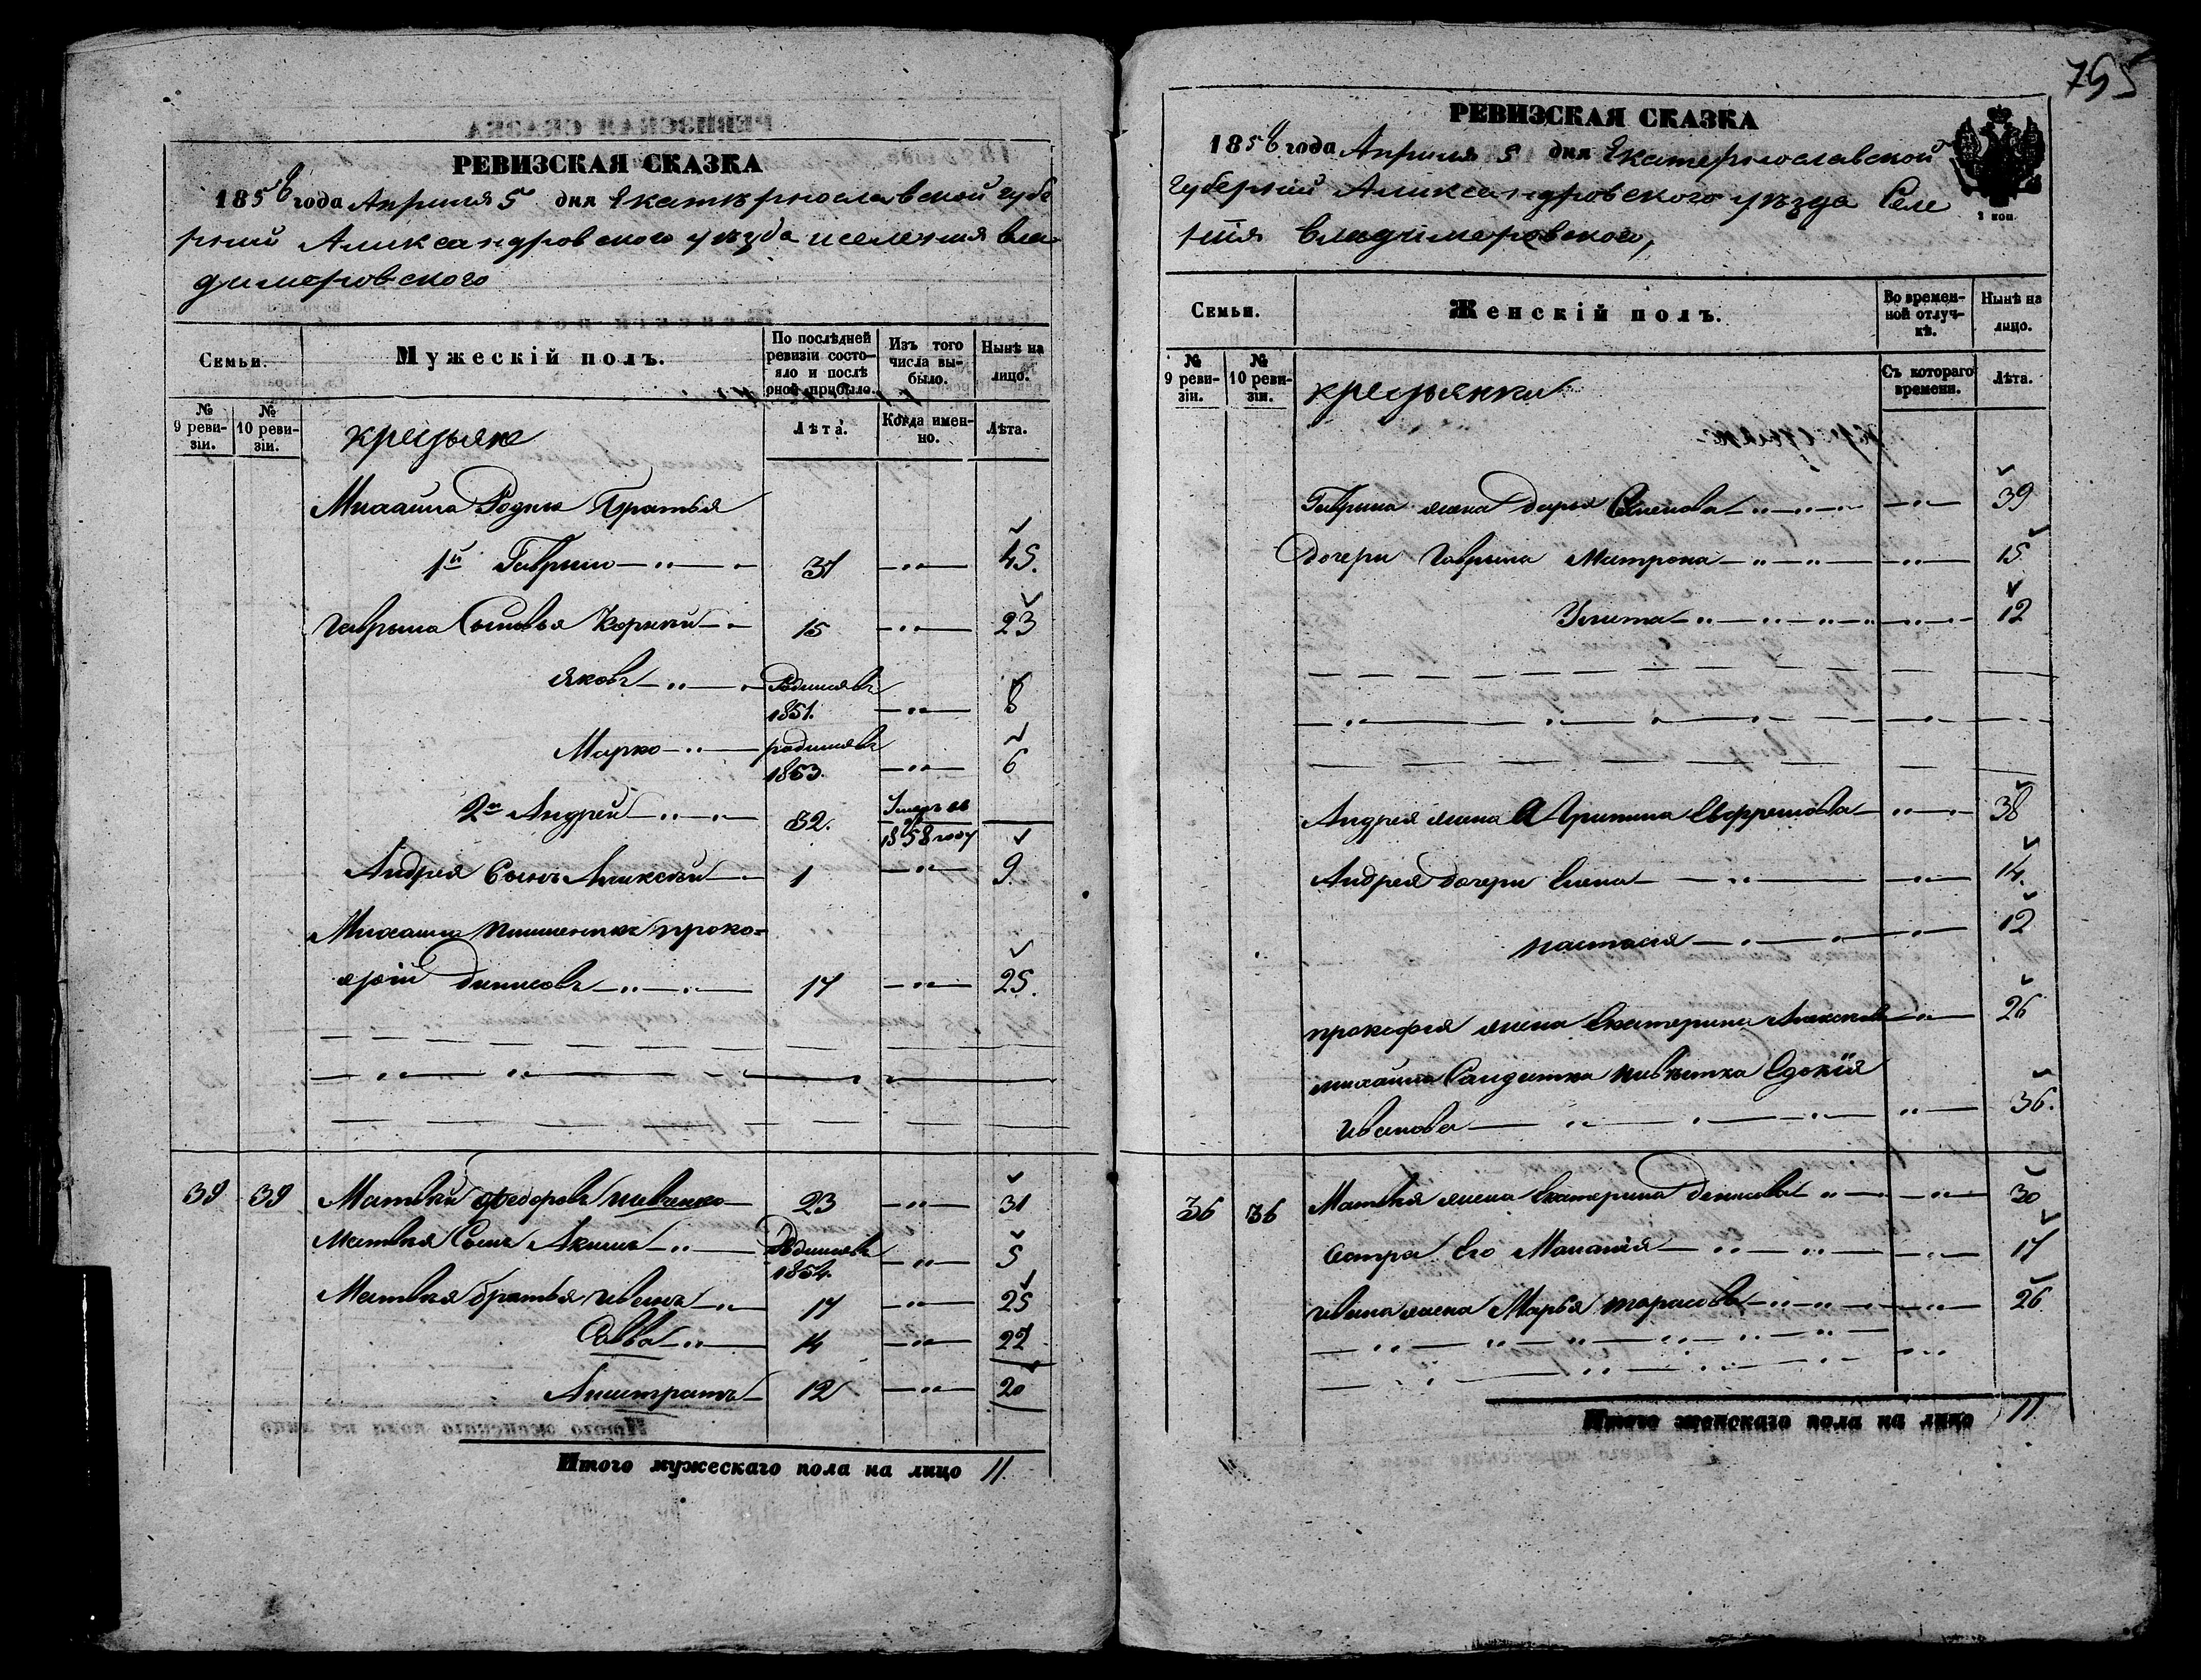 РЕВИЗСКАЯ СКАЗКА
1858 года Априля 5 дня Екатериославской губе
рнии Аликсандровского уезда иселения вла
димеровского
Семьи.
Мужескій полъ.
По послѣдней ревизіи состояло и послѣ оной прибыло.
Изъ того числа выбыло.
Нынѣ на лицо.
№ 9 ревизіи.
№ 10 ревизіи.
крестьяне
Лѣта.
Когда именно.
Лѣта.
Михаила Родны Братья
1й Гаврыло 37 45.
Гаврыла Сыновья Корний 15 23
яковъ Родился въ 1851. 8
Марко родился въ 1853. 6
2й Андрей 32. Умеръ въ 1858 году
Андрея Сынъ Аликсей 1 9
Михаила проко=
фий Динисовъ 17 25.
39 39 Матвѣй федоровъ 23 31
Матвея Сынъ Акимъ Родился въ 1854. 5
Матвея братья иванъ 17 25
Савва 14 22
12 20
Итого мужескаго пола на лицо 11
795
РЕВИЗСКАЯ СКАЗКА
1858 года Априля 5 дня Екатериославской
губернии Аликсандровского уезда Селе
ния владимеровского,
1 коп
Семьи.
Женскій полъ.
Во временной отлучкѣ.
Нынѣ на лицо.
№ 9 ревизіи.
№ 10 ревизіи.
крестьянки
Съ котораго времени.
Лѣта.
Гаврила жена дарья Семенова 39
Дочери Гаврыла Матрона 15
Улита 12
Андрея жена Агрипина 38
Андрея дочери Елена 14.
настасия 12
прокофия жена Екатерина 26
михаила Едокия
иванова 36.
36 36 Матвея жена Екатерина Денисова 30
Сестра Его Малания 17
ивана жена Марья тарасова 26
Итого женскаго пола на лицо 11